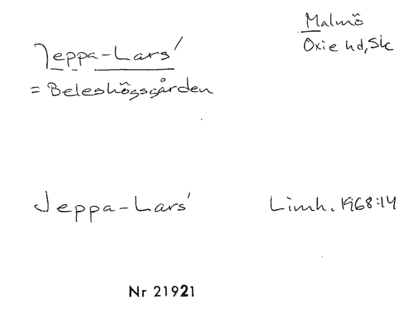 Jeppa-Lars'
= Beleshögsgården
Malmö
Oxie hd, Sk
Jeppa-Lars'
Limh. 1968:14
Nr 21921